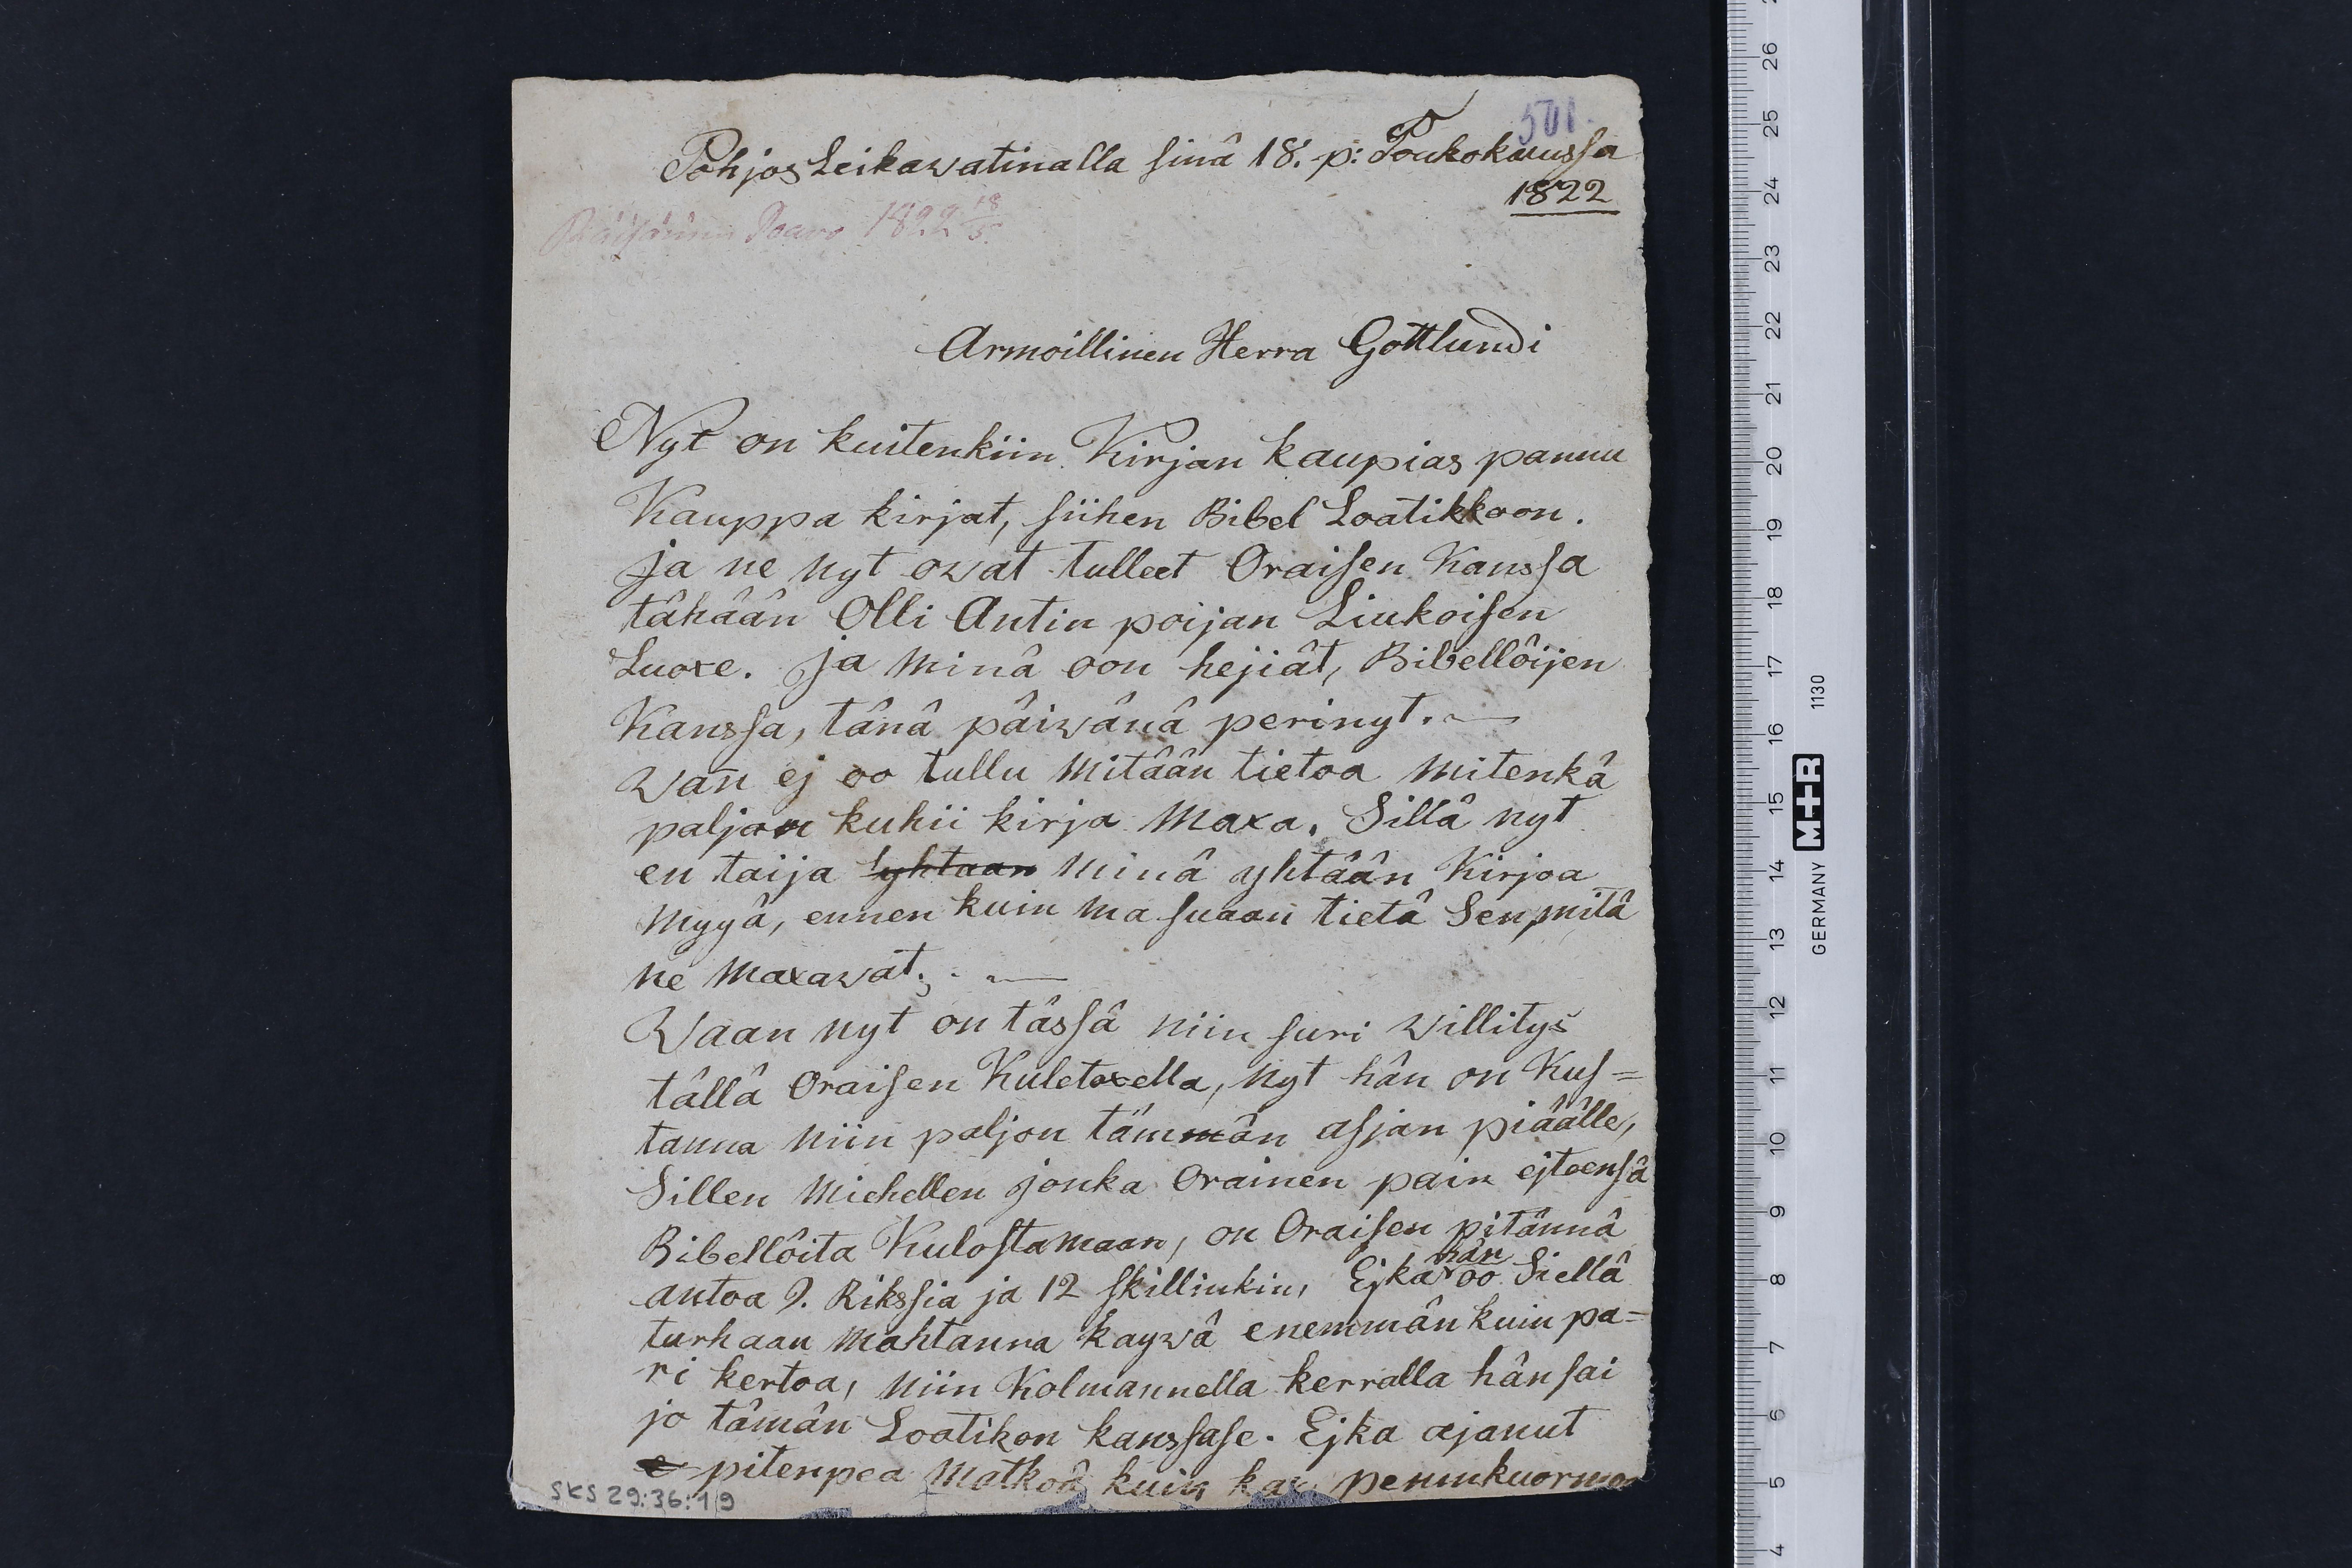 501.
Pohjos Leikawatinalla sinâ 18. p: Toukokuussa
1822
Räisäinen Paavo 1822 18/5.
Armoillinen Herra Gottlundi
Nyt on kuitenkiin Kirjan kaupias pannu
Kauppa kirjat, siihen Bibel Loatikkoon.
ja ne nyt owat tulleet Oraisen Kanssa
tâhâân Olli Antin poijan Liukoisen
Luoxe. ja minâ oon hejiât, Bibellôijen
Kanssa, tânâ pâiwânâ perinyt. —
wan ej oo tullu mitâân tietoa mitenkâ
paljon kuhii kirja maxa. Sillâ nyt
en taija yhtaan minâ yhtâân Kirjoa
myyâ, ennen kuin ma suaan tietâ Sen, mitâ
ne maxawat. —
Waan nyt on tâssâ niin suri willitys
tâllâ Oraisen Kuletoxella, nyt hân on Kus=
tanna niin paljon tâmmân asjan piââlle,
Sillen Michellen jonka Orainen pain ejtoensâ
Bibellôita Kulostamaan, on Oraisen pitânnâ
antoa 9. Rikssia ja 12 skillinkin, Ejkâ hân oo Siellâ
turhaan mahtanna kaywâ enemmân kuin pa=
ri kertoa, niin Kolmannella kerralla hân sai
jo tâmân Loatikon kanssase. Ejka ajanut
pitenpea matkoâ kuin kax penunkuormoa
SKS 29:36:19
26
25
24
23
22
21
20
19
18
17
16
15
14
13
12
11
10
9
8
7
6
5
4
GERMANY M+R 1130